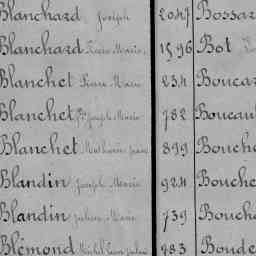 Blanchard Joseph 2047 Bossar
Blanchard Pierre Marie 1596 Bot
Blanchet Pierre Marie 234 Boucar
Blanchet Joseph Marie 782 Boucau
Blanchet Mathurin 899 Bouche
Blandin Joseph Marie 924 Bouche
Blandin Julien Marie 739 Boucho
Blémond Michel 983 Boude